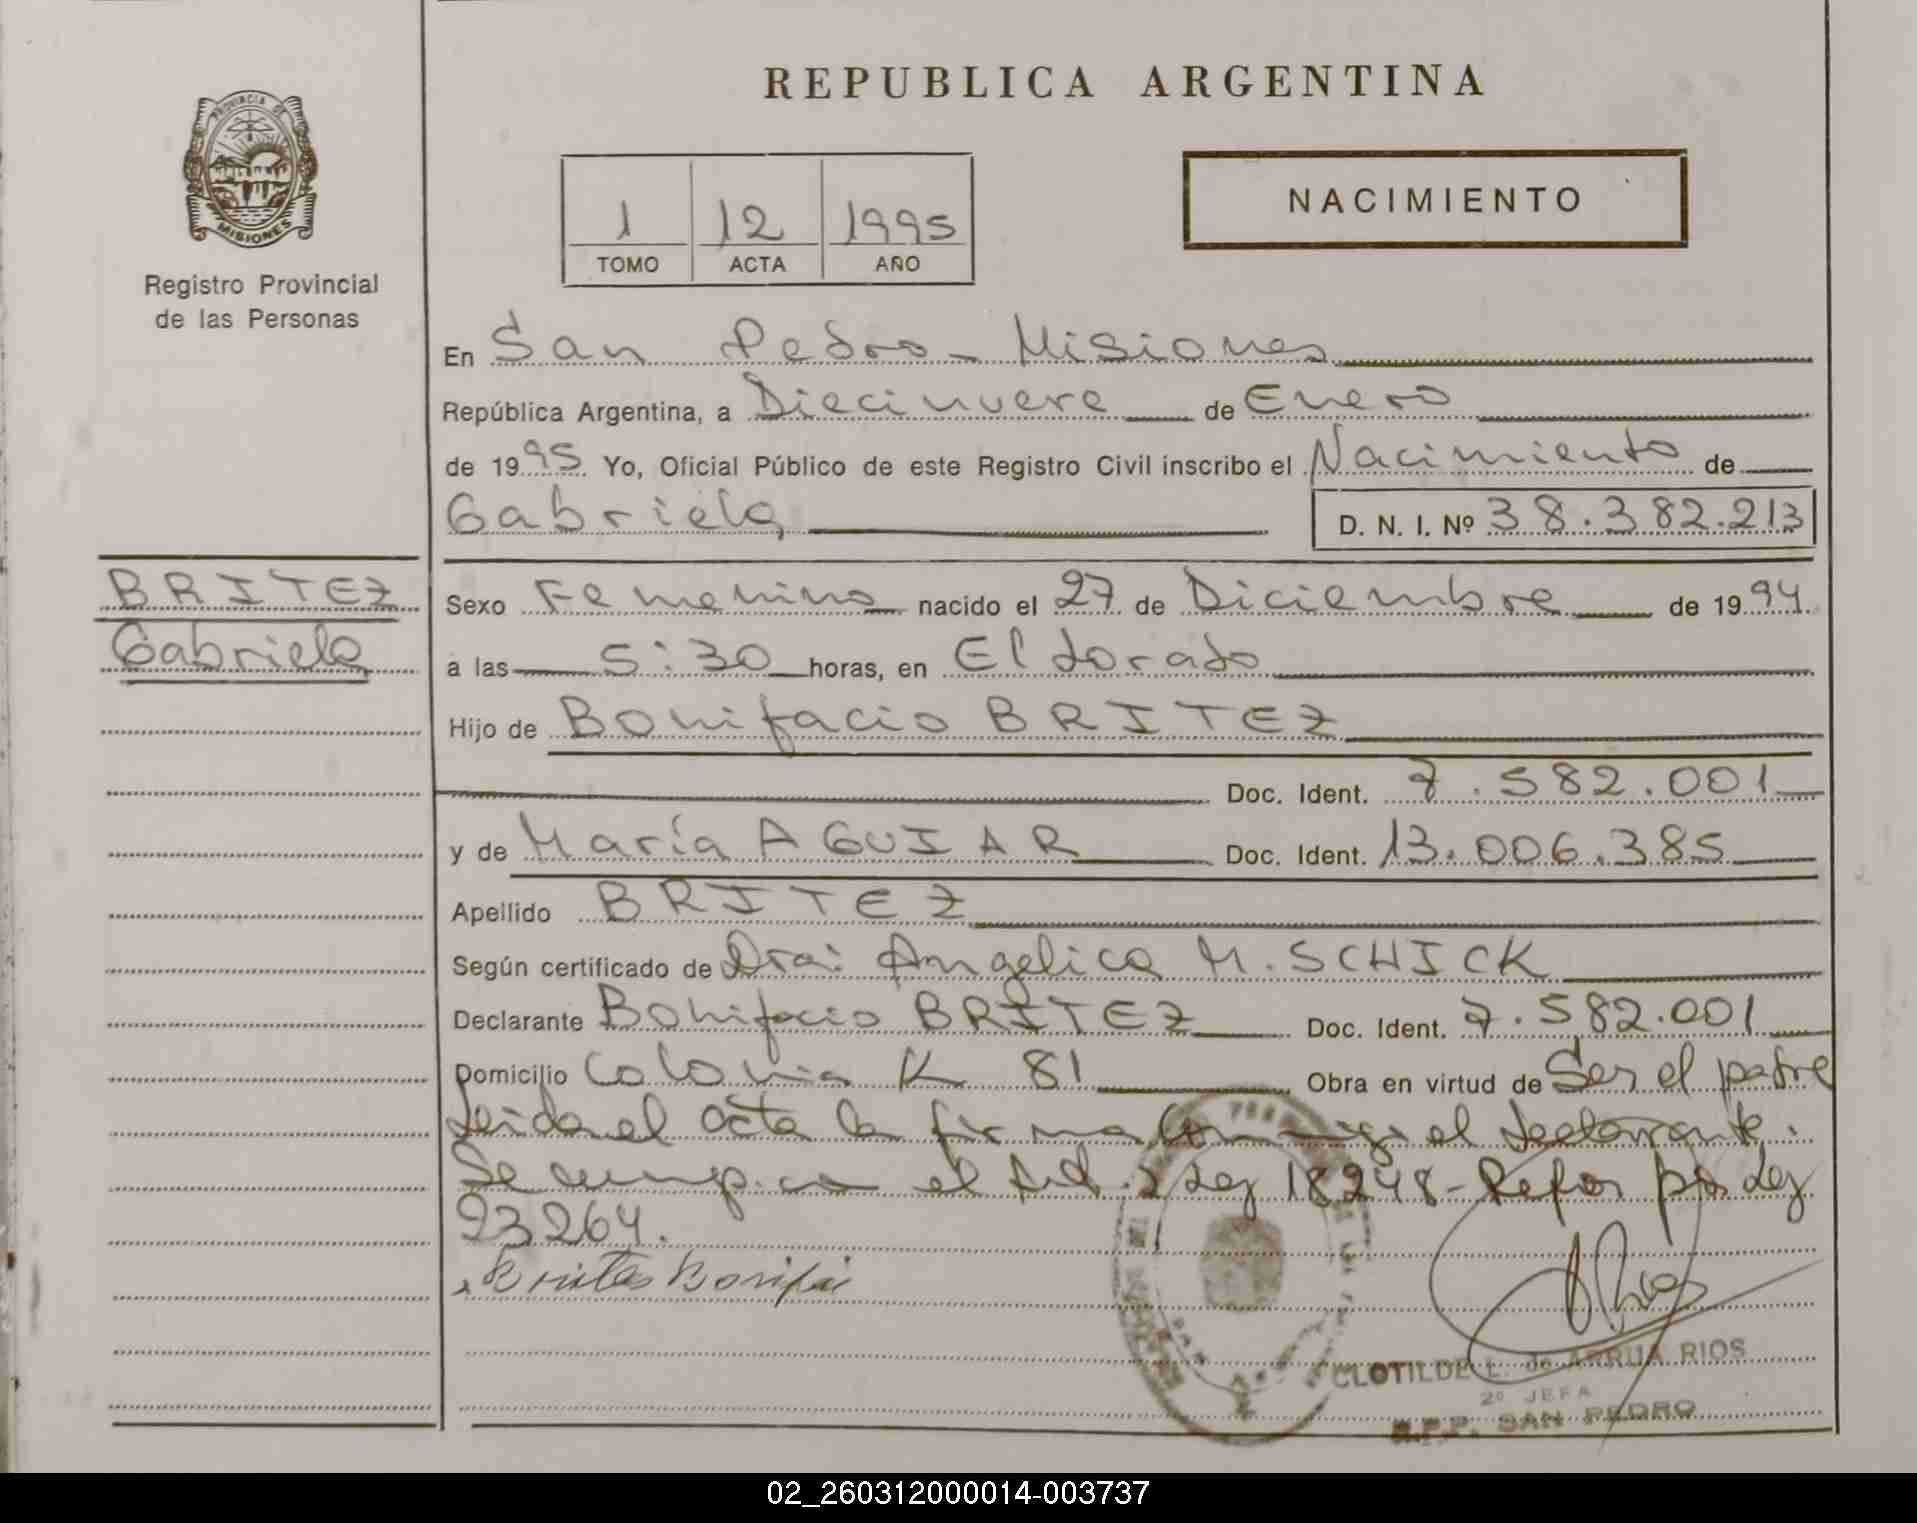 REPUBLICA ARGENTINA
PROVINCIA DE
MISIONES
Registro Provincial
de las Personas
1 12 1995
TOMO ACTA AÑO
NACIMIENTO
En San Pedro - Misiones
República Argentina, a Diecinueve de Enero
de 1995 Yo, Oficial Público de este Registro Civil inscribo el Nacimiento de
Gabriela D. N. I. Nº 38.382.213
BRITEZ
Gabriela
Sexo Femenino nacido el 27 de Diciembre de 1994
a las 5:30 horas, en Eldorado
Hijo de Bonifacio BRITEZ
Doc. Ident. 7.582.001
y de María AGUIAR Doc. Ident. 13.006.385
Apellido BRITEZ
Según certificado de Dra: Angelica M. SCHICK
Declarante Bonifacio BRITEZ Doc. Ident. 7.582.001
Domicilio Colonia K 81 Obra en virtud de Ser el padre
Leida el acta la firma conmigo el declarante.
Se cump. con el Art. 2 Ley 18248 - Refor por Ley
23264.
Britez Bonifa
ARios
CLOTILDE L. de ARRUA RIOS
2º JEFA
R.P.P. SAN PEDRO
02_260312000014-003737